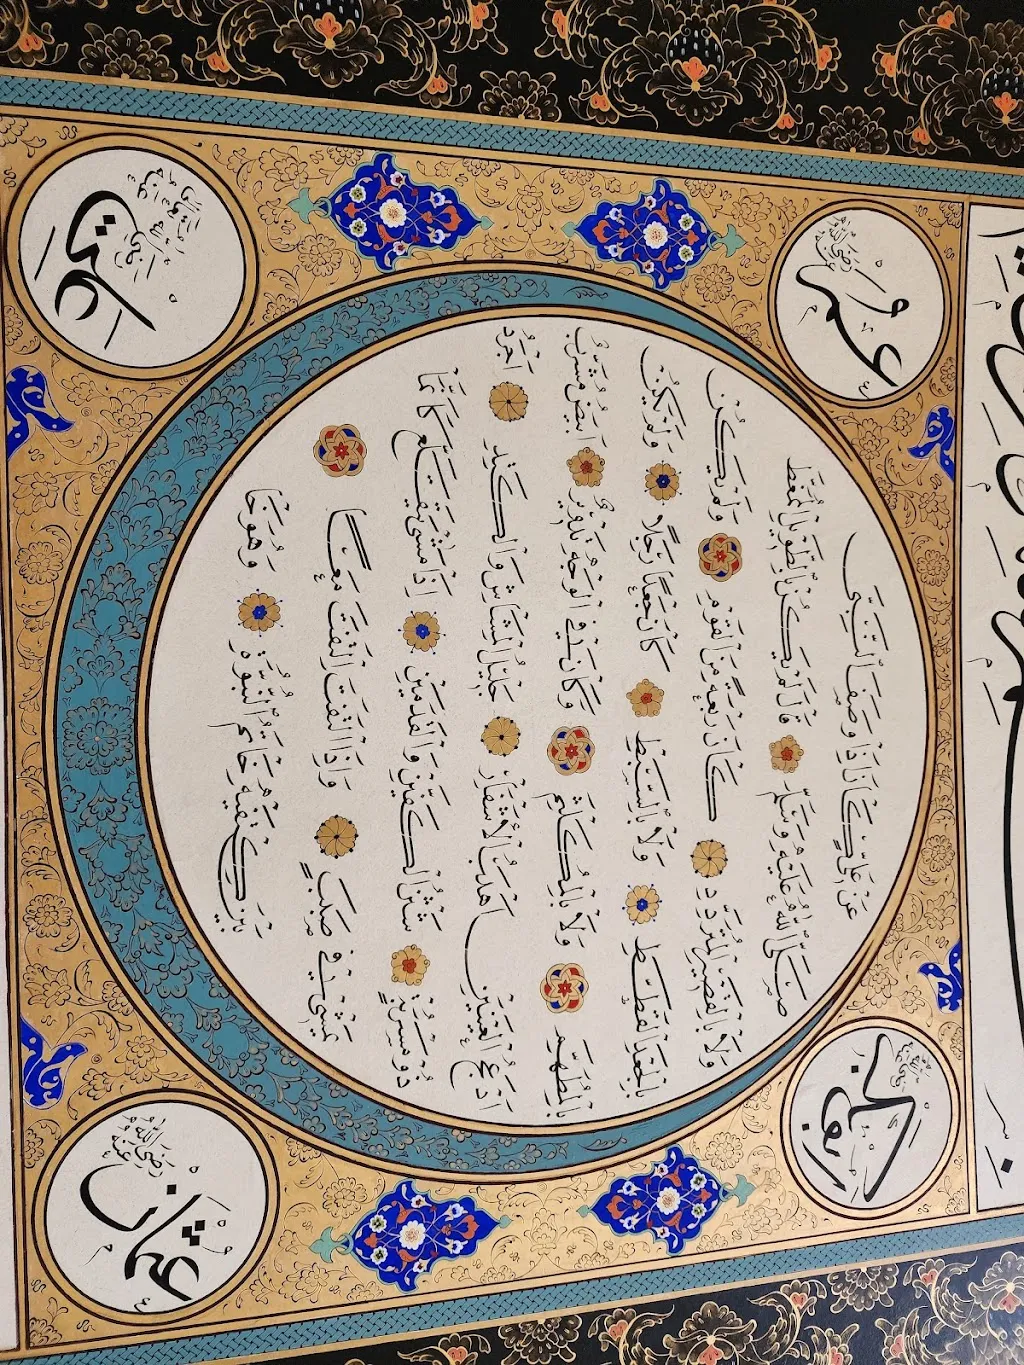 ابوبكر رضي الله عنه
عمر رضي الله عنه
عَنْ عَلِيٍّ كَانَ اِذَا وَصَفَ النَّبِيَّ
صَلَّى اللهُ عَلَيْهِ وَسَلَّمَ قَالَ لَمْ يَكُنْ بِالطَّوِيلِ الْمُمَغَّطِ
وَلَا بِالْقَصِيرِ الْمُتَرَدِّدِ كَانَ رَبْعَةً مِنَ الْقَوْمِ وَلَمْ يَكُنْ
بِالْجَعْدِ الْقَطَطِ وَلَا بِالسَّبِطِ كَانَ جَعْدًا رَجِلًا وَلَمْ يَكُنْ
بِالْمُطَهَّمِ وَلَا بِالْمُكَلْثَمِ وَكَانَ فِي الْوَجْهِ تَدْوِيرٌ اَبْيَضُ مُشْرَبٌ
اَدْعَجُ الْعَيْنَيْنِ اَهْدَبُ الْاَشْفَارِ جَلِيلُ الْمُشَاشِ وَالْكَتَدِ اَجْرَدُ
ذُو مَسْرُبَةٍ شَثْنُ الْكَفَّيْنِ وَالْقَدَمَيْنِ اِذَا مَشَى تَقَلَّعَ كَاَنَّمَا
يَمْشِي فِي صَبَبٍ وَاِذَا الْتَفَتَ الْتَفَتَ مَعًا
بَيْنَ كَتِفَيْهِ خَاتَمُ النُّبُوَّةِ وَهُوَ خَا
عثمان رضي الله عنه
علي رضي الله تعالى عنه